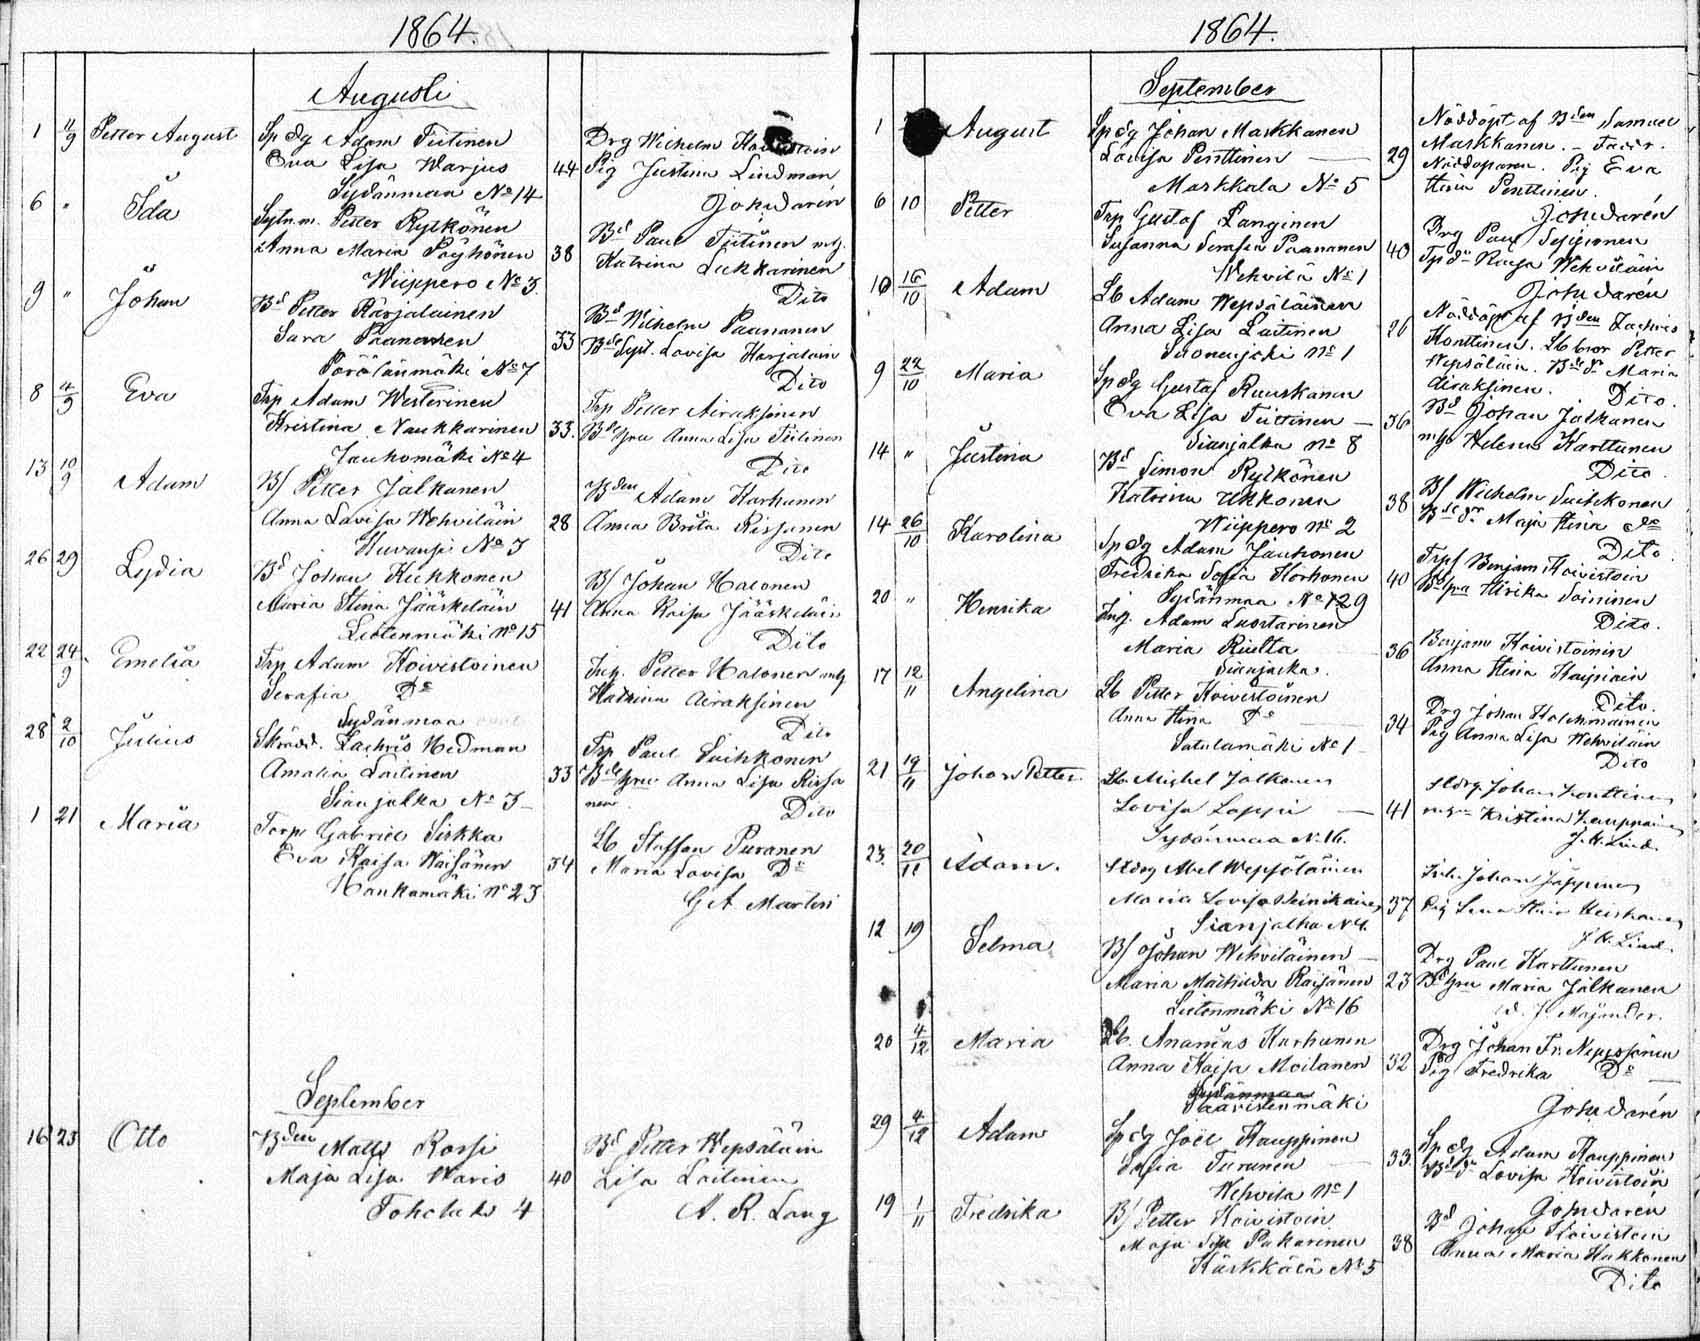 1864.
Augusti
1 11/9 Petter August
Sp dg Adam Tiitinen
Eva Lisa Warjus 44
Sydänmaa No 14
Drg Wilhelm
Pig Justina Lindman
Johs Darén
6 " Ida
Petter Rytkönen
Anna Maria Pöyhönen 38
Wiippero No 3.
Bd Paul Tiitinen mg.
Katrina Lukkarinen
Dito
9 " Johan
Bd Petter Karjalainen
Sara Paananen 33
Pörölänmäki No 7
Bd Wilhelm Paananen
Lovisa Karjalain
Dito
8 4/9 Eva
Trp Adam Westerinen
Kristina Naukkarinen 33.
Jauhomäki No 4
Trp Petter Airaksinen
Anna Lisa Tiitinen
Dito
13 10/9 Adam
B/ Petter Jalkanen
Anna Lovisa Wehviläin 28
No 3
Bden Adam Karhunen
Anna Brita Rissanen
Dito
26 29 Lydia
Bd Johan Kukkonen
Maria Stina Jääskeläin 41
Lietenmäki No 15
B/ Johan Halonen
Anna Kaisa Jääskeläin
Dito
22 24/9 Emelia
Trp Adam Koivistoinen
Serafia Do
Sydänmaa
Petter Halonen mg
Katrina Airaksinen
Dito
28 2/10 Julius
Skrädd. Zachris Hedman
Amalia Laitinen 33
Sianjalka No 3
Trp Paul Suihkonen
Anna Lisa Rissa
nen Dito
1 21 Maria
Torp Gabriel Sirkka
Eva Kaisa Väisänen 34
Haukamäki No 23
Lb Staffan Puranen
Maria Lovisa Do
G A Martin
September
16 23 Otto
Bden Matts Rossi
Maja Lisa Waris 40
4
Bd Petter Wepsäläin
Lisa Laitinen
A. R. Lang
1864.
September
1 August
Sp dg Johan Markkanen
Lovisa Penttinen 29
Markkala No 5
Nöddöpt af Bden Samuel
Markkanen. – Faddr.
Pig Eva
Stina Penttinen.
Johs Darén
6 10 Petter
Trp Gustaf Langinen
Susanna Serafia Paananen 40
Wehvilä No 1
Drg Paul
Kaisa Wehviläin
Johs Darén
10 16/10 Adam
Lb Adam Wepsäläinen
Anna Lisa Laitinen 26
Suonenjoki No 1
Nöddöpt af Bden Zachris
Konttinen. Lb bror Petter
Wepsäläin. Maria
Airaksinen. Dito.
9 22/10 Maria
Sp dg Gustaf Ruuskanen
Eva Lisa Tiittinen 36
Sianjalka No 8
Bd Johan Jalkanen
Helena Karttunen
Dito.
14 " Justina
Bd Simon Rytkönen
Katrina Ukkonen 38
Wiippero No 2
B/ Wilhelm Suihkonen
Maja Stina do
Dito.
14 26/10 Karolina
Sp dg Adam Jauhonen
Fredrika Sofia Korhonen 40
Sydänmaa No 129
Benjam Koivistoin
Ulrika Soininen
Dito.
20 " Henrika
Adam Luostarinen
Maria Riutta 36
Sianjalka.
Benjam Koivistoinin
Anna Stina
Dito.
17 12/11 Angelina
Lb Petter Koivistoinen
Anna Stina Do 34
Satulamäki No 1
Drg Johan
Pig Anna Lisa Wehviläin
Dito
21 19/11 Johan Petter
Lb Michel Jalkanen
Lovisa Lappi 41
Sydänmaa N: 16.
Johan
Kristina Kauppinen
J. H. Lind.
23. 20/11 Adam.
Abel Wepsäläinen
Maria Lovisa 37
Sianjalka N 4.
Johan Jäppinen
Pig Lena Stina
J. H. Lind.
12 19 Selma
B/ Johan Wehviläinen
Maria Mathilda Räisänen 23
Lietenmäki No 16
Drg Paul Karttunen
Maria Jalkanen
Majander.
20 4/12 Maria
Lb. Ananias Karhunen
Anna Kaisa Moilanen 32
Sydänmaa
Saaristenmäki
Drg Johan Fr. Nepissonen
Pig Fredrika Do
Johs Darén
29 4/12 Adam
Sp dg Joël Kauppinen
Sofia Turunen 33.
Wehvilä No 1
Sp dg Adam Kauppinen
Lovisa Koivistoin
Johs Darén
19 1/11 Fredrika
B/ Petter Koivistoin
Maja Lisa Pakarinen 38
Kärkkälä No 5
Bd Johan Koivistoin
Anna Maria Hakkonen
Dito